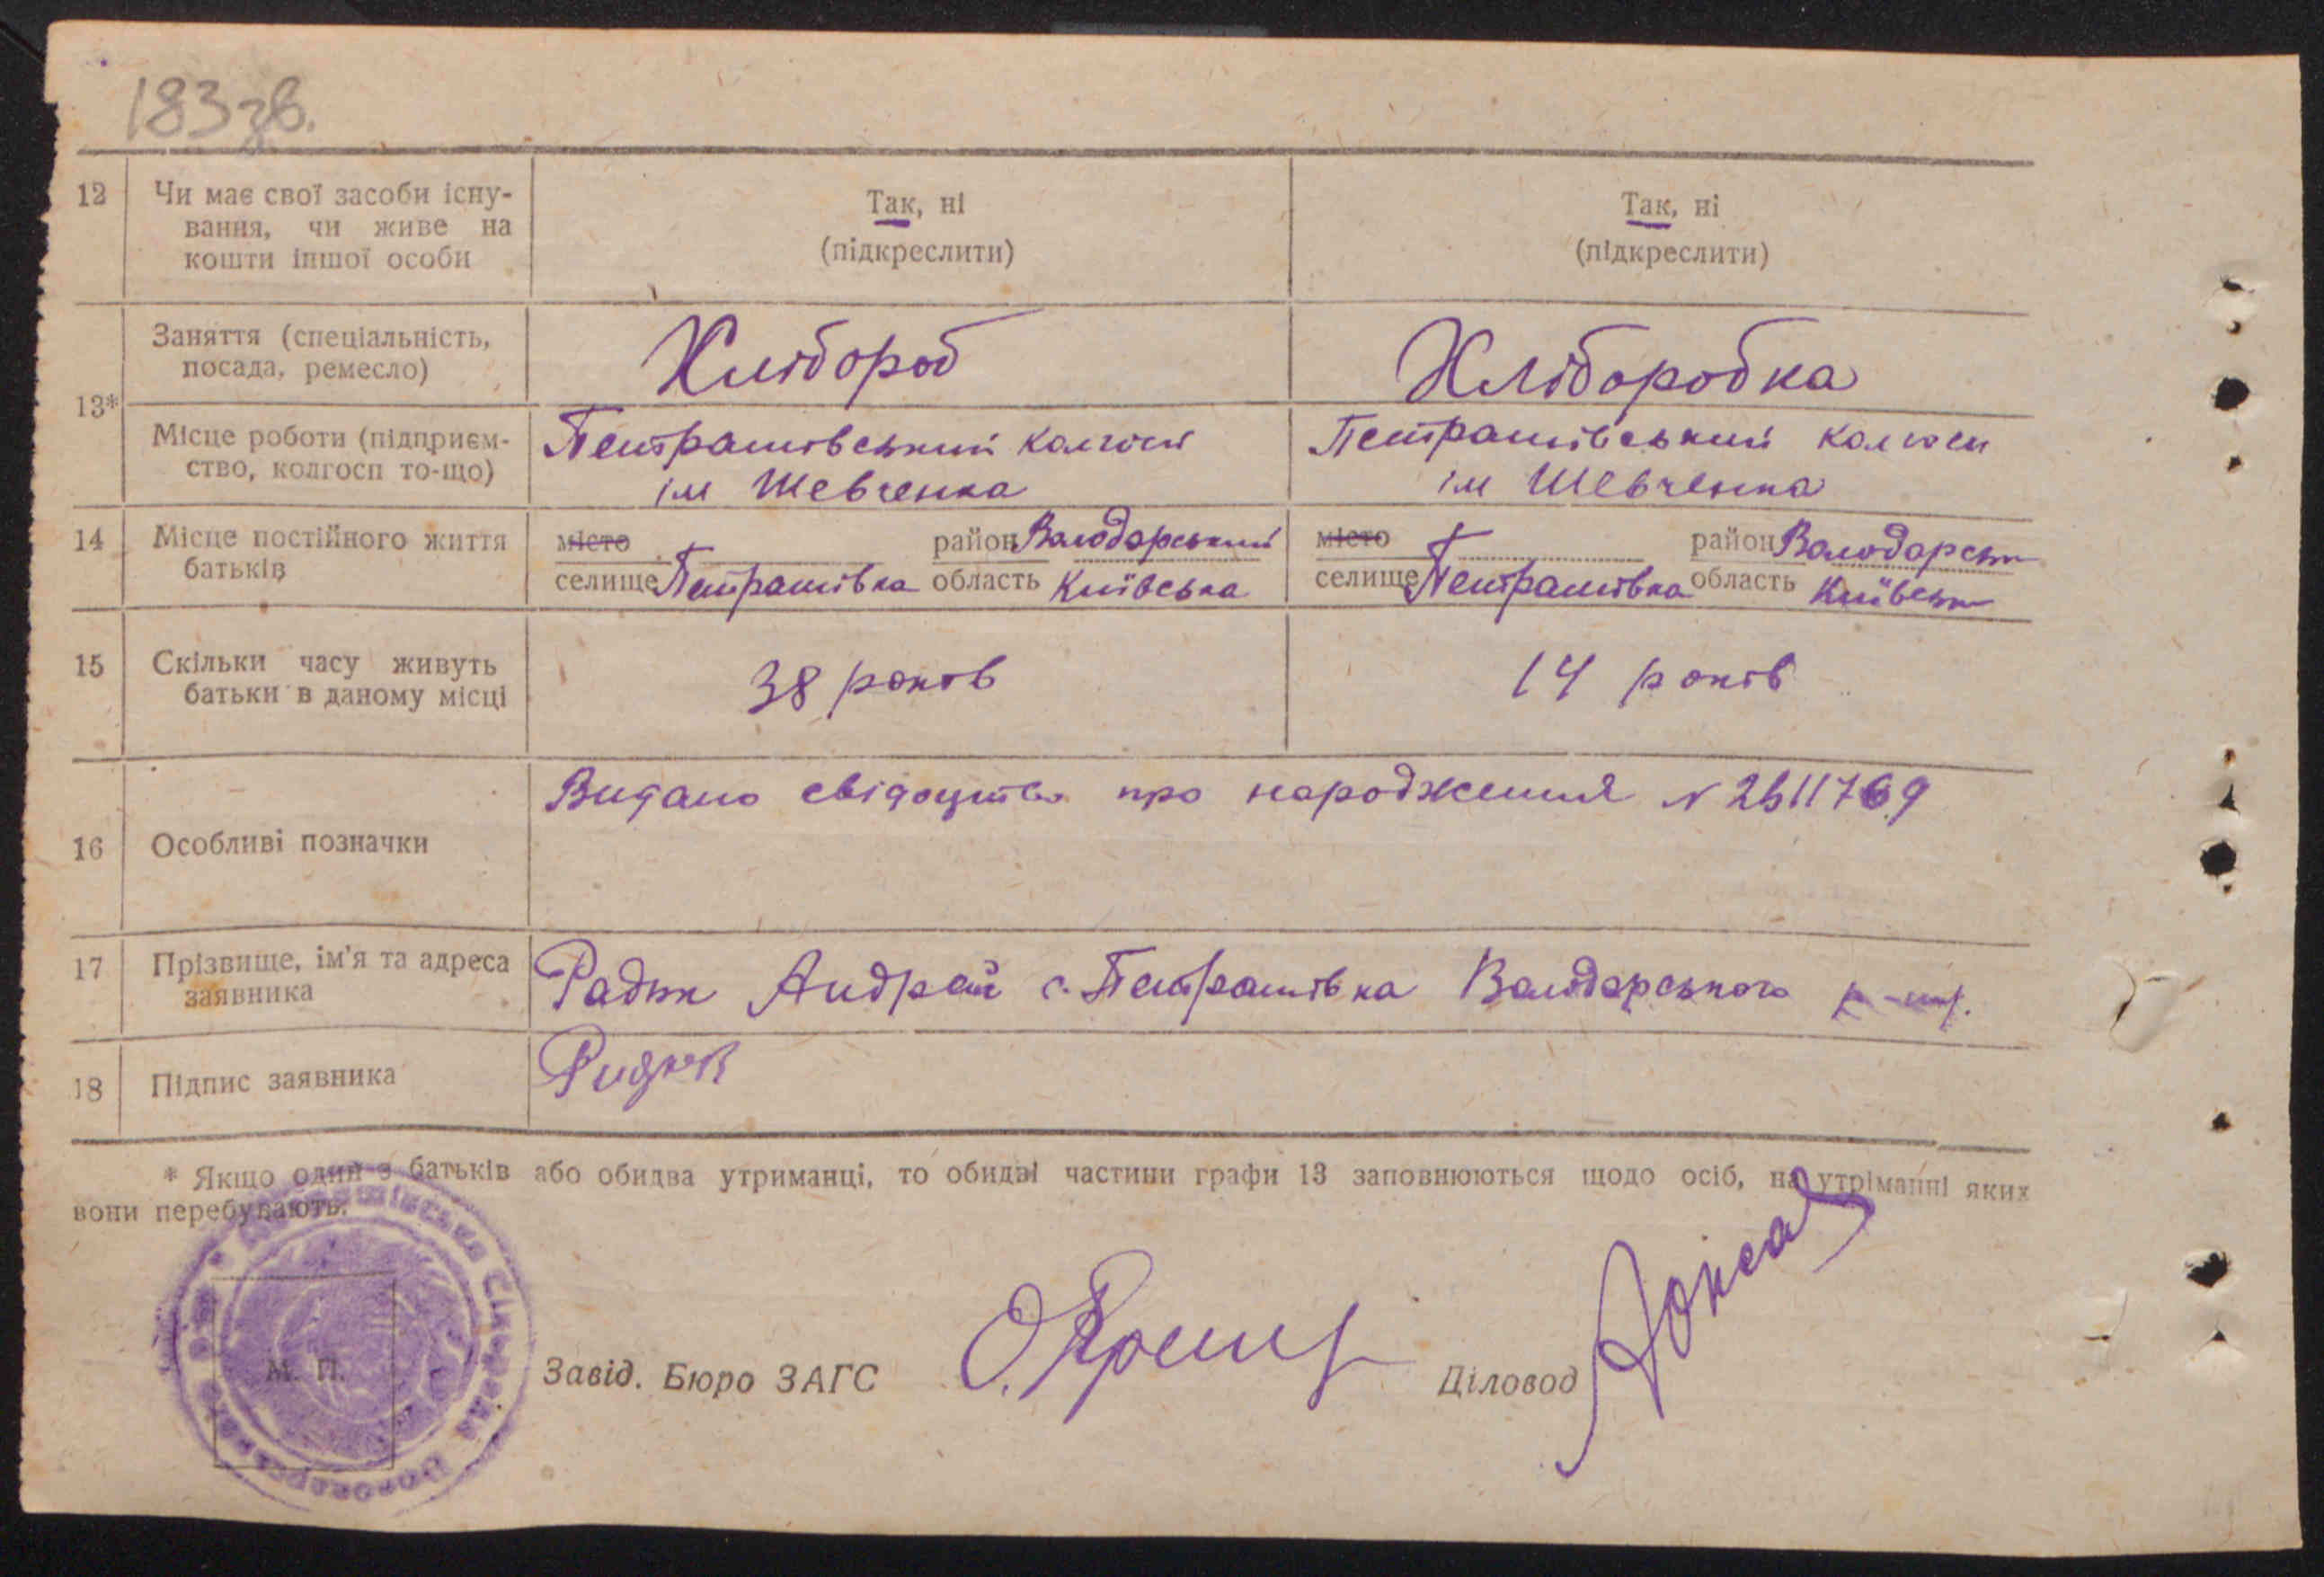 183 зв.
12 Чи має свої засоби існу- Так, ні Так, ні
вання, чи живе на (підкреслити) (підкреслити)
кошти іншої особи
13* Заняття (спеціальність, Хлібороб Хліборобка
посада, ремесло)
Місце роботи (підприєм- Петрашівський колгосп Петрашівський колгосп
ство, колгосп то-що) ім Шевченка ім Шевченка
14 Місце постійного життя місто район Володарський місто район Володарськ
батьків селище Петрашівка область Київська селище Петрашівка область Київськ
15 Скільки часу живуть 38 років 14 років
батьки в даному місці
16 Особливі позначки Видано свідоцтво про народження N 2611769
17 Прізвище, ім'я та адреса Радюк Андрей с. Петрашівка Володарського р-ну.
заявника
18 Підпис заявника Ридюк
* Якщо один з батьків або обидва утриманці, то обидві частини графи 13 заповнюються щодо осіб, на утріманні яких
вони перебувають.
М. П.
Завід. Бюро ЗАГС Діловод